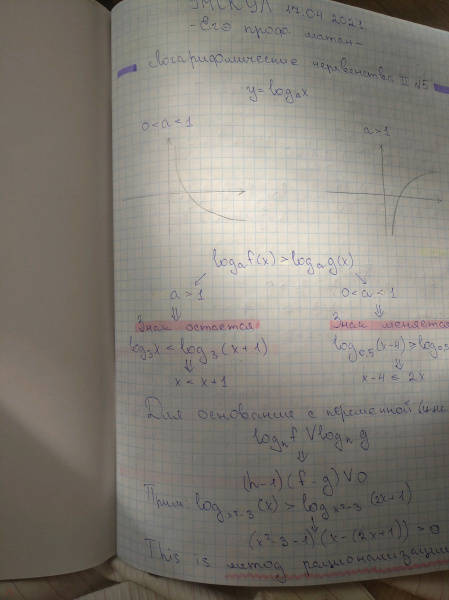 УМСКУЛ 17.04.2021
-Егэ проф. матан-
Логарифмические неравенства II №5
y=logₐx
0<a<1 a>1
logₐf(x)>logₐg(x)
a>1 0<a<1
⇓ ⇓
Знак остаётся Знак меняется
log₃x<log₃(x+1) log₀,₅(x-4)>log₀,₅
⇓ ⇓
x<x+1 x-4<2x
Для основание с переменной
logₕf∨logₕg
⇓
(h-1)(f-g)∨0
Прим. log_{x²-3}(x)>log_{x²-3}(2x+1)
↓
(x²-3-1)(x-(2x+1))>0
This is метод рационализации